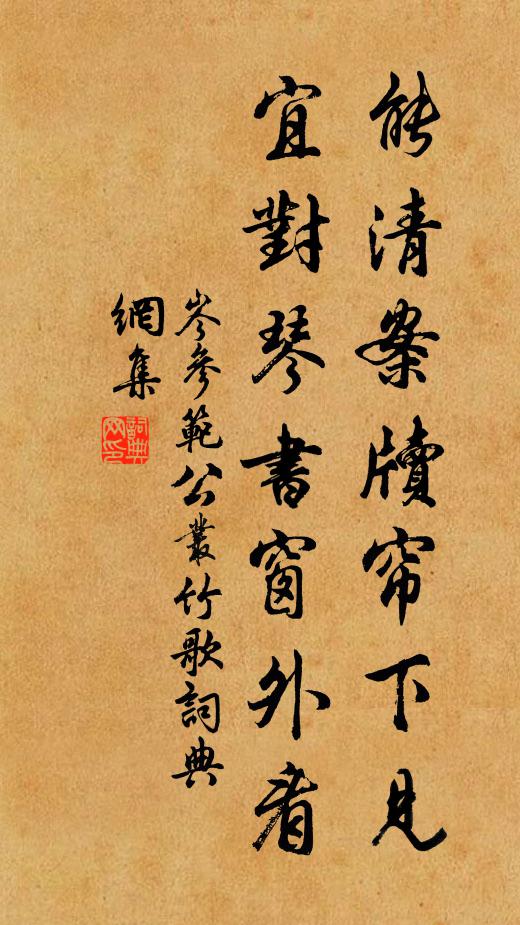 能清案牘帘下見
宜對琴書窗外看
岑參範公叢竹歌詞典
網集
詞典
网印